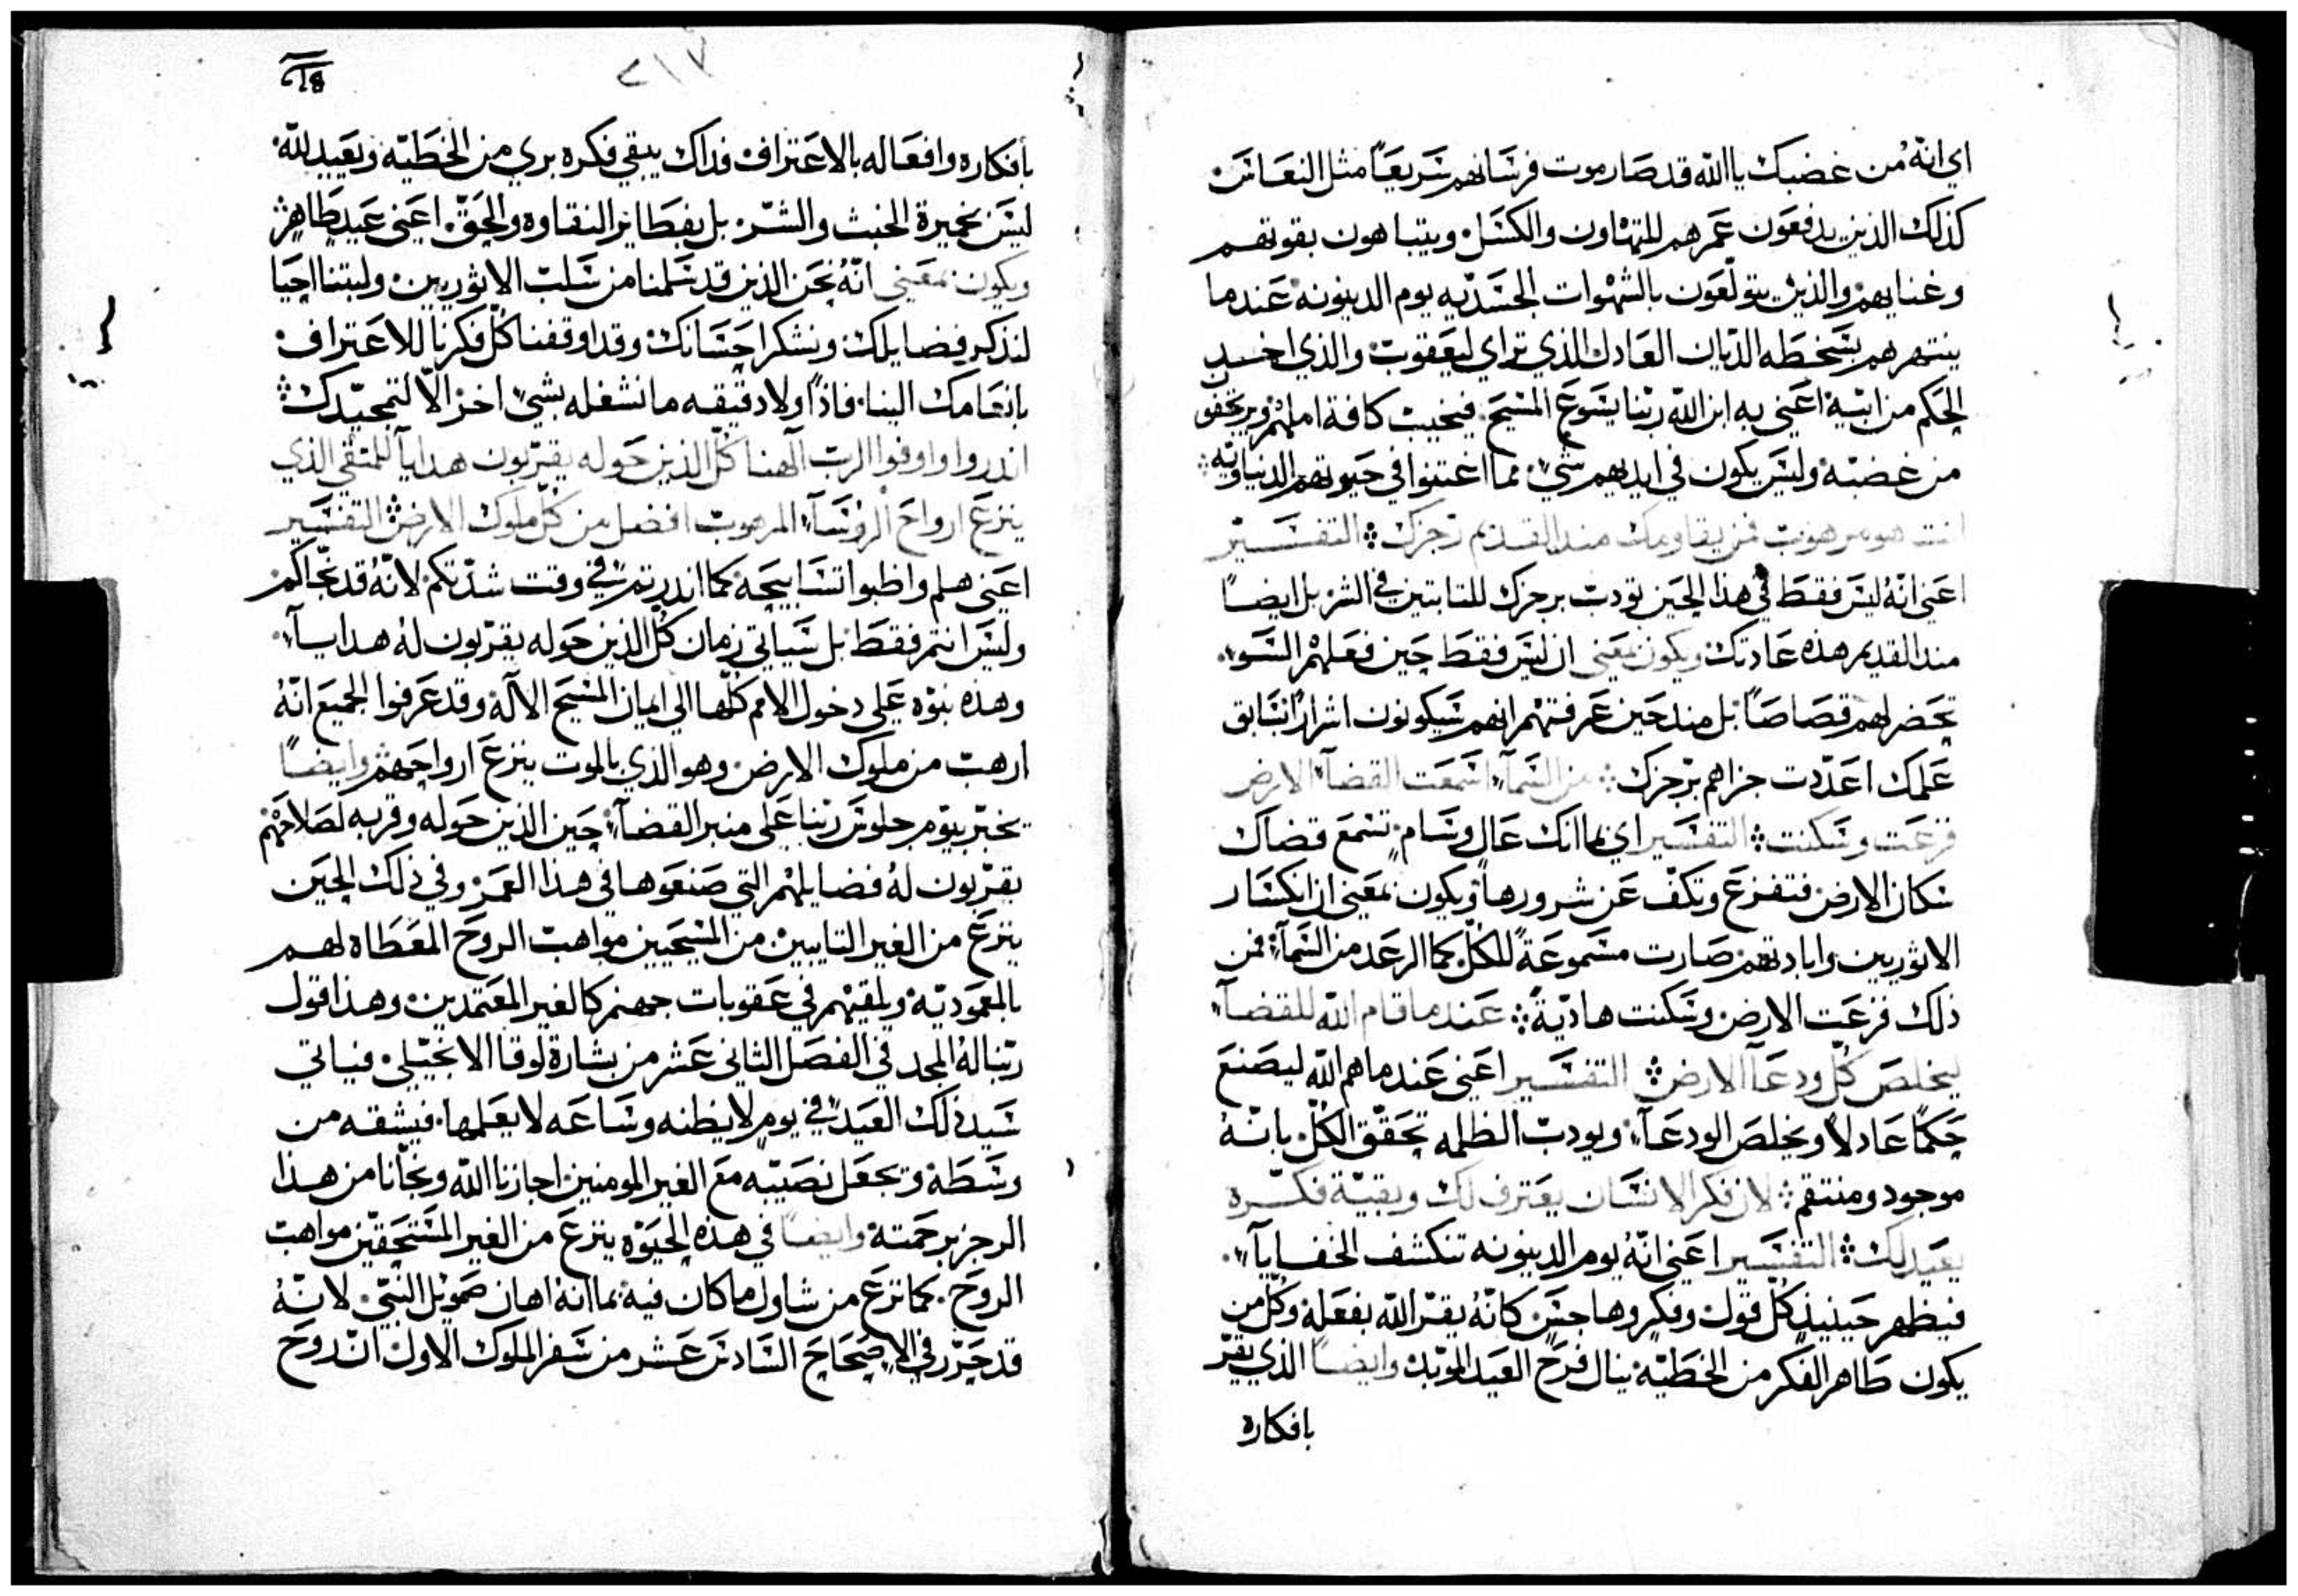 اي انهُ من غضبك يا الله قد صار موت فرسانهم سريعاً مثل النعاس
كذلك الذين يدفعون عمرهم للتهاون والكسل ويتباهون بقوتهم
وغنايهم والذين يتولعون بالشهوات الجسديه يوم الدينونه عندما
ينتهرهم بسخطه الديان العادل الذي تراي ليعقوب والذي اخد
الحكم من ابيه اعني به ابن الله ربنا يسوع المسيح فيخيب كافة املهم ويرتجفون
من غضبه وليس يكون في ايديهم شي مما اغتنوا في حيوتهم الدنياويه
انت هو مرهوب فمن يقاومك مند القديم رجزك التفسير
اعني انهُ ليس فقط في هذا الحين تودب برجزك للتابتين في الشر بل ايضاً
مند القديم هذه عادتك ويكون بمعني ان ليس فقط حين فعلهم السوء
تحضر لهم قصاصاً بل مند حين عرفتهم انهم سيكونون اشراراً بسابق
علمك اعددت جزاهم برجزك من السمآء اسمعت القضآء الارض
فزعت وسكنت التفسير اي بما انك عال وسام تسمع قضاك
سكان الارض فتفزع وتكف عن شرورها ويكون بمعني ان انكسار
الاثوريين وابادتهم صارت مسموعةً للكل كما الرعد من السمآء فمن
ذلك فزعت الارض وسكنت هاديةً عندما قام الله للقضآء
ليخلص كل ودعآ الارض التفسير اعني عندما هم الله ليصنع
حكماً عادلاً ويخلص الودعآء ويودب الظلمه تحقق الكل بانهُ
موجود ومنتقم لان فكر الانسان يعترف لك وبقية فكره
يعيد لك التفسير اعني انهُ يوم الدينونه تنكشف الخفايآء
فيظهر حينيذٍ كل قول وفكر وهاجس كانهُ يقر الله بفعله وكل من
يكون طاهر الفكر من الخطيه ينال فرح العيد الموبد وايضاً الذي يقر
بافكاره
٤١٣
بافكاره وافعاله بالاعتراف فداك يبقي فكره بري من الخطيه ويعيد لله
ليس بخميرة الخبث والشر بل بفطاير النقاوه والحق اعني عيد طاهر
ويكون بمعني انهُ نحن الذين قد سلمنا من سلب الاثوريين ولبتنا احيا
لندكر فضايلك ونشكر احسانك وقد اوقفنا كل فكرنا للاعتراف
بانعامك الينا فاذاً ولا دقيقه ما نشغله بشي اخر الا لتمجيدك
اندروا واوفوا الرب الهنا كل الذين حوله يقربون هدايآ للمتقي الذي
ينزع ارواح الروسآء المرهوب افضل من كل ملوك الارض التفسير
اعني هلم واظبوا تسابيحه كما اندرتم في وقت شدتكم لانهُ قد نجاكم
وليس انتم فقط بل سياتي زمان كل الذين حوله يقربون لهُ هدايآء
وهذه نبوه علي دخول الامم كلها الي ايمان المسيح الاله وقد عرفوا الجميع انهُ
ارهب من ملوك الارض وهو الذي بالموت ينزع ارواحهم وايضاً
يخبر بيوم جلوس ربنا علي منبر القضآء حين الذين حوله وقربه لصلاحهم
يقربون لهُ فضايلهم التي صنعوها في هذا العمر وفي ذلك الحين
ينزع من الغير التايبين من المسيحيين مواهب الروح المعطاه لهم
بالمعموديه ويلقيهم في عقوبات جهنم كالغير المعتمدين وهذا قول
ربنا لهُ المجد في الفصل الثاني عشر من بشارة لوقا الانجيلي فياتي
سيد ذلك العبد في يوم لا يظنه وساعه لا يعلمها فيشقه من
وسطه ويجعل نصيبه مع الغير المومنين اجازنا الله ونجانا من هذا
الرجز برحمته وايضاً في هذه الحيوه ينزع من الغير المستحقين مواهب
الروح كما نزع من شاول ما كان فيه بما انه اهان صمويل النبي لانهُ
قد حرر في الاصحاح السادس عشر من سفر الملوك الاول ان روح